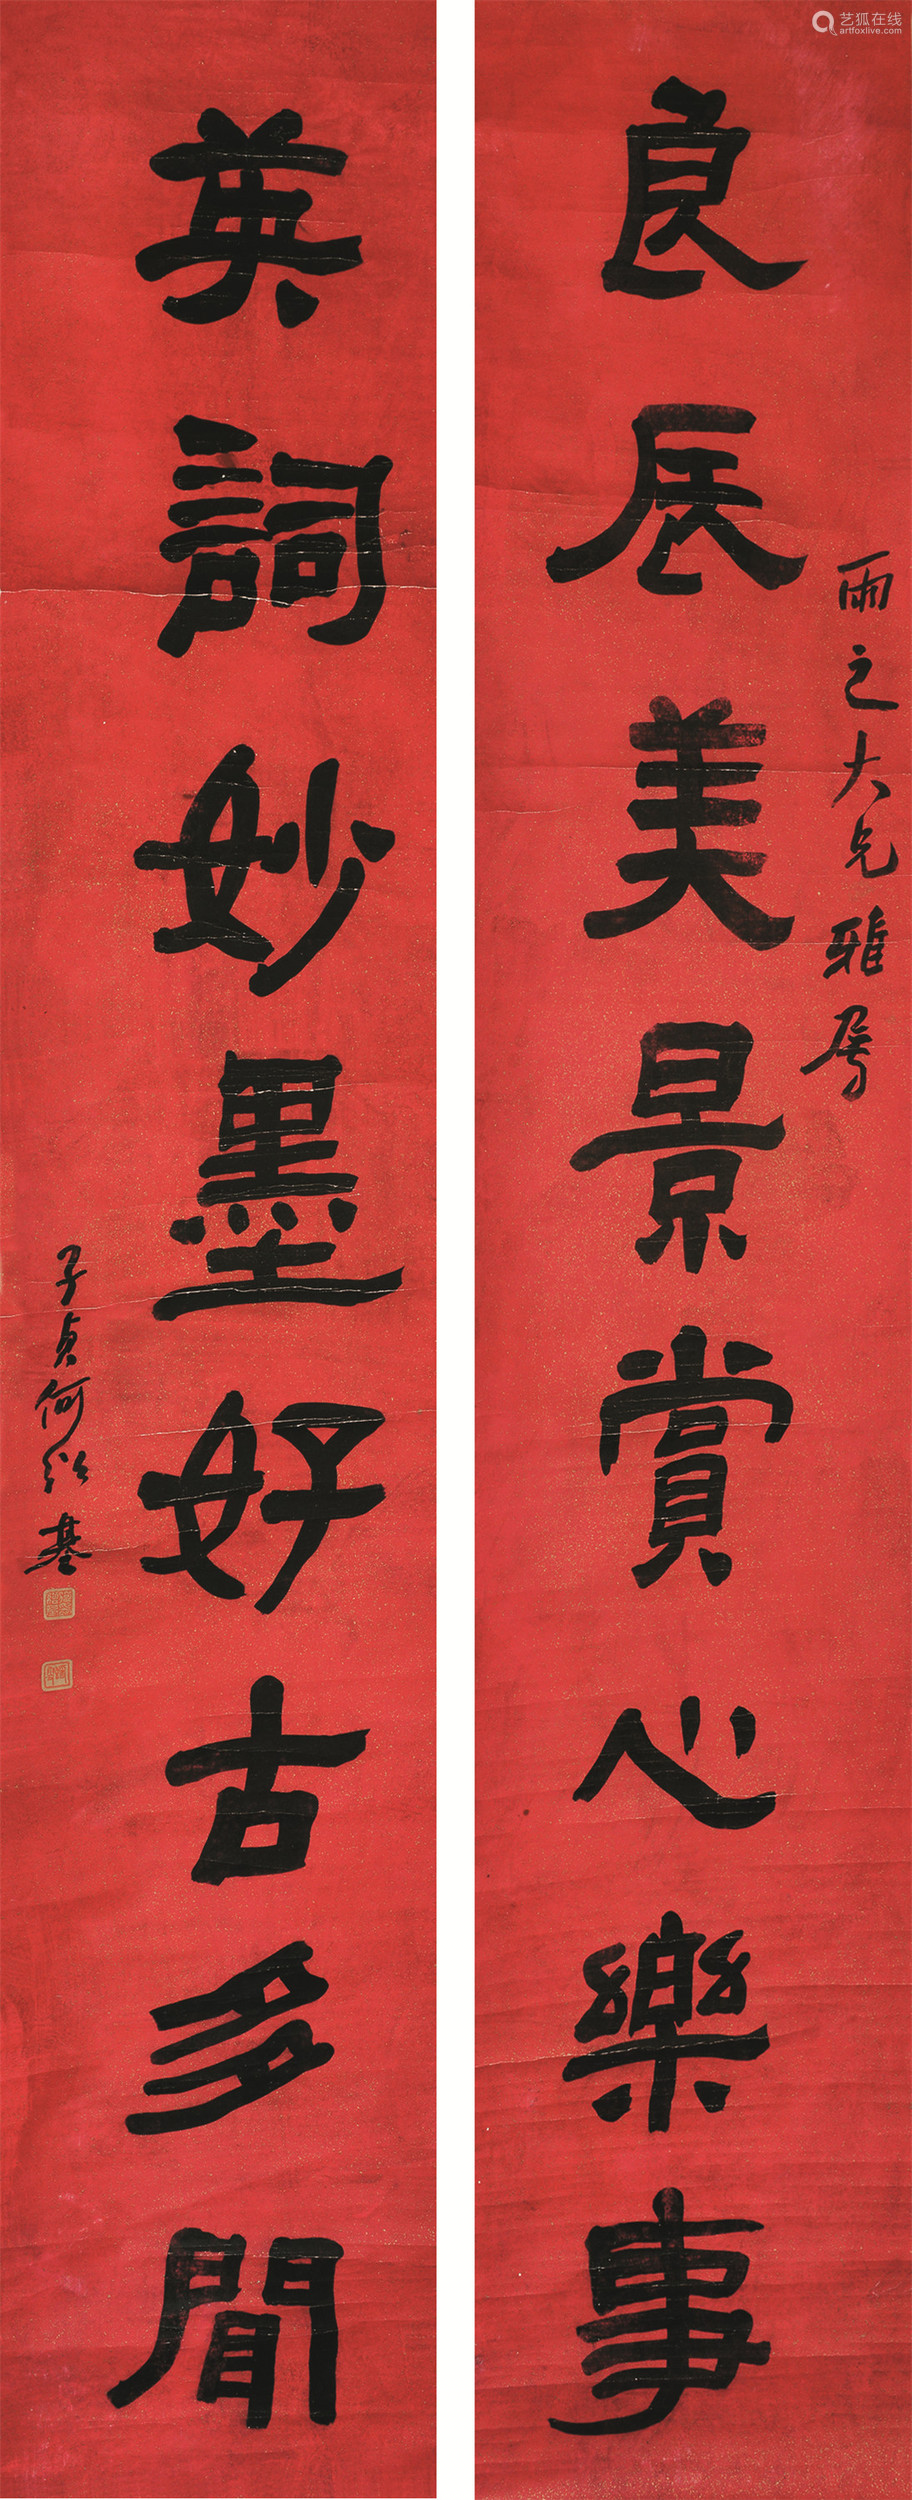 艺狐在线
artfoxlive.com
雨之大兄雅属
良辰美景赏心樂事
英詞妙墨好古多聞
子貞何紹基